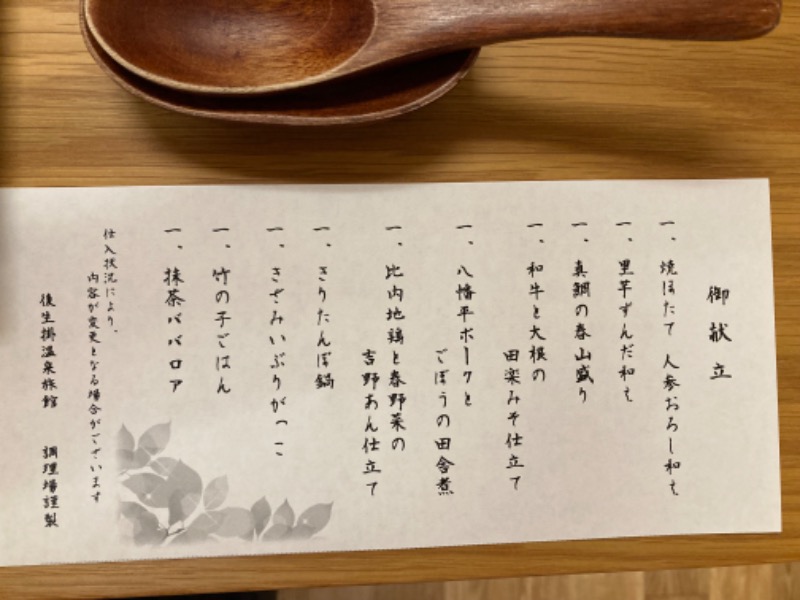 御献立
一、焼ほたて 人参おろし和え
一、里芋ずんだ和え
一、真鯛の春山盛り
一、和牛と大根の
田楽みそ仕立て
一、八幡平ポークと
ごぼうの田舎煮
一、比内地鶏と春野菜の
吉野あん仕立て
一、きりたんぽ鍋
一、きざみいぶりがっこ
一、竹の子ごはん
一、抹茶ババロア
仕入状況により、
内容が変更となる場合がございます
後生掛温泉旅館 調理場謹製